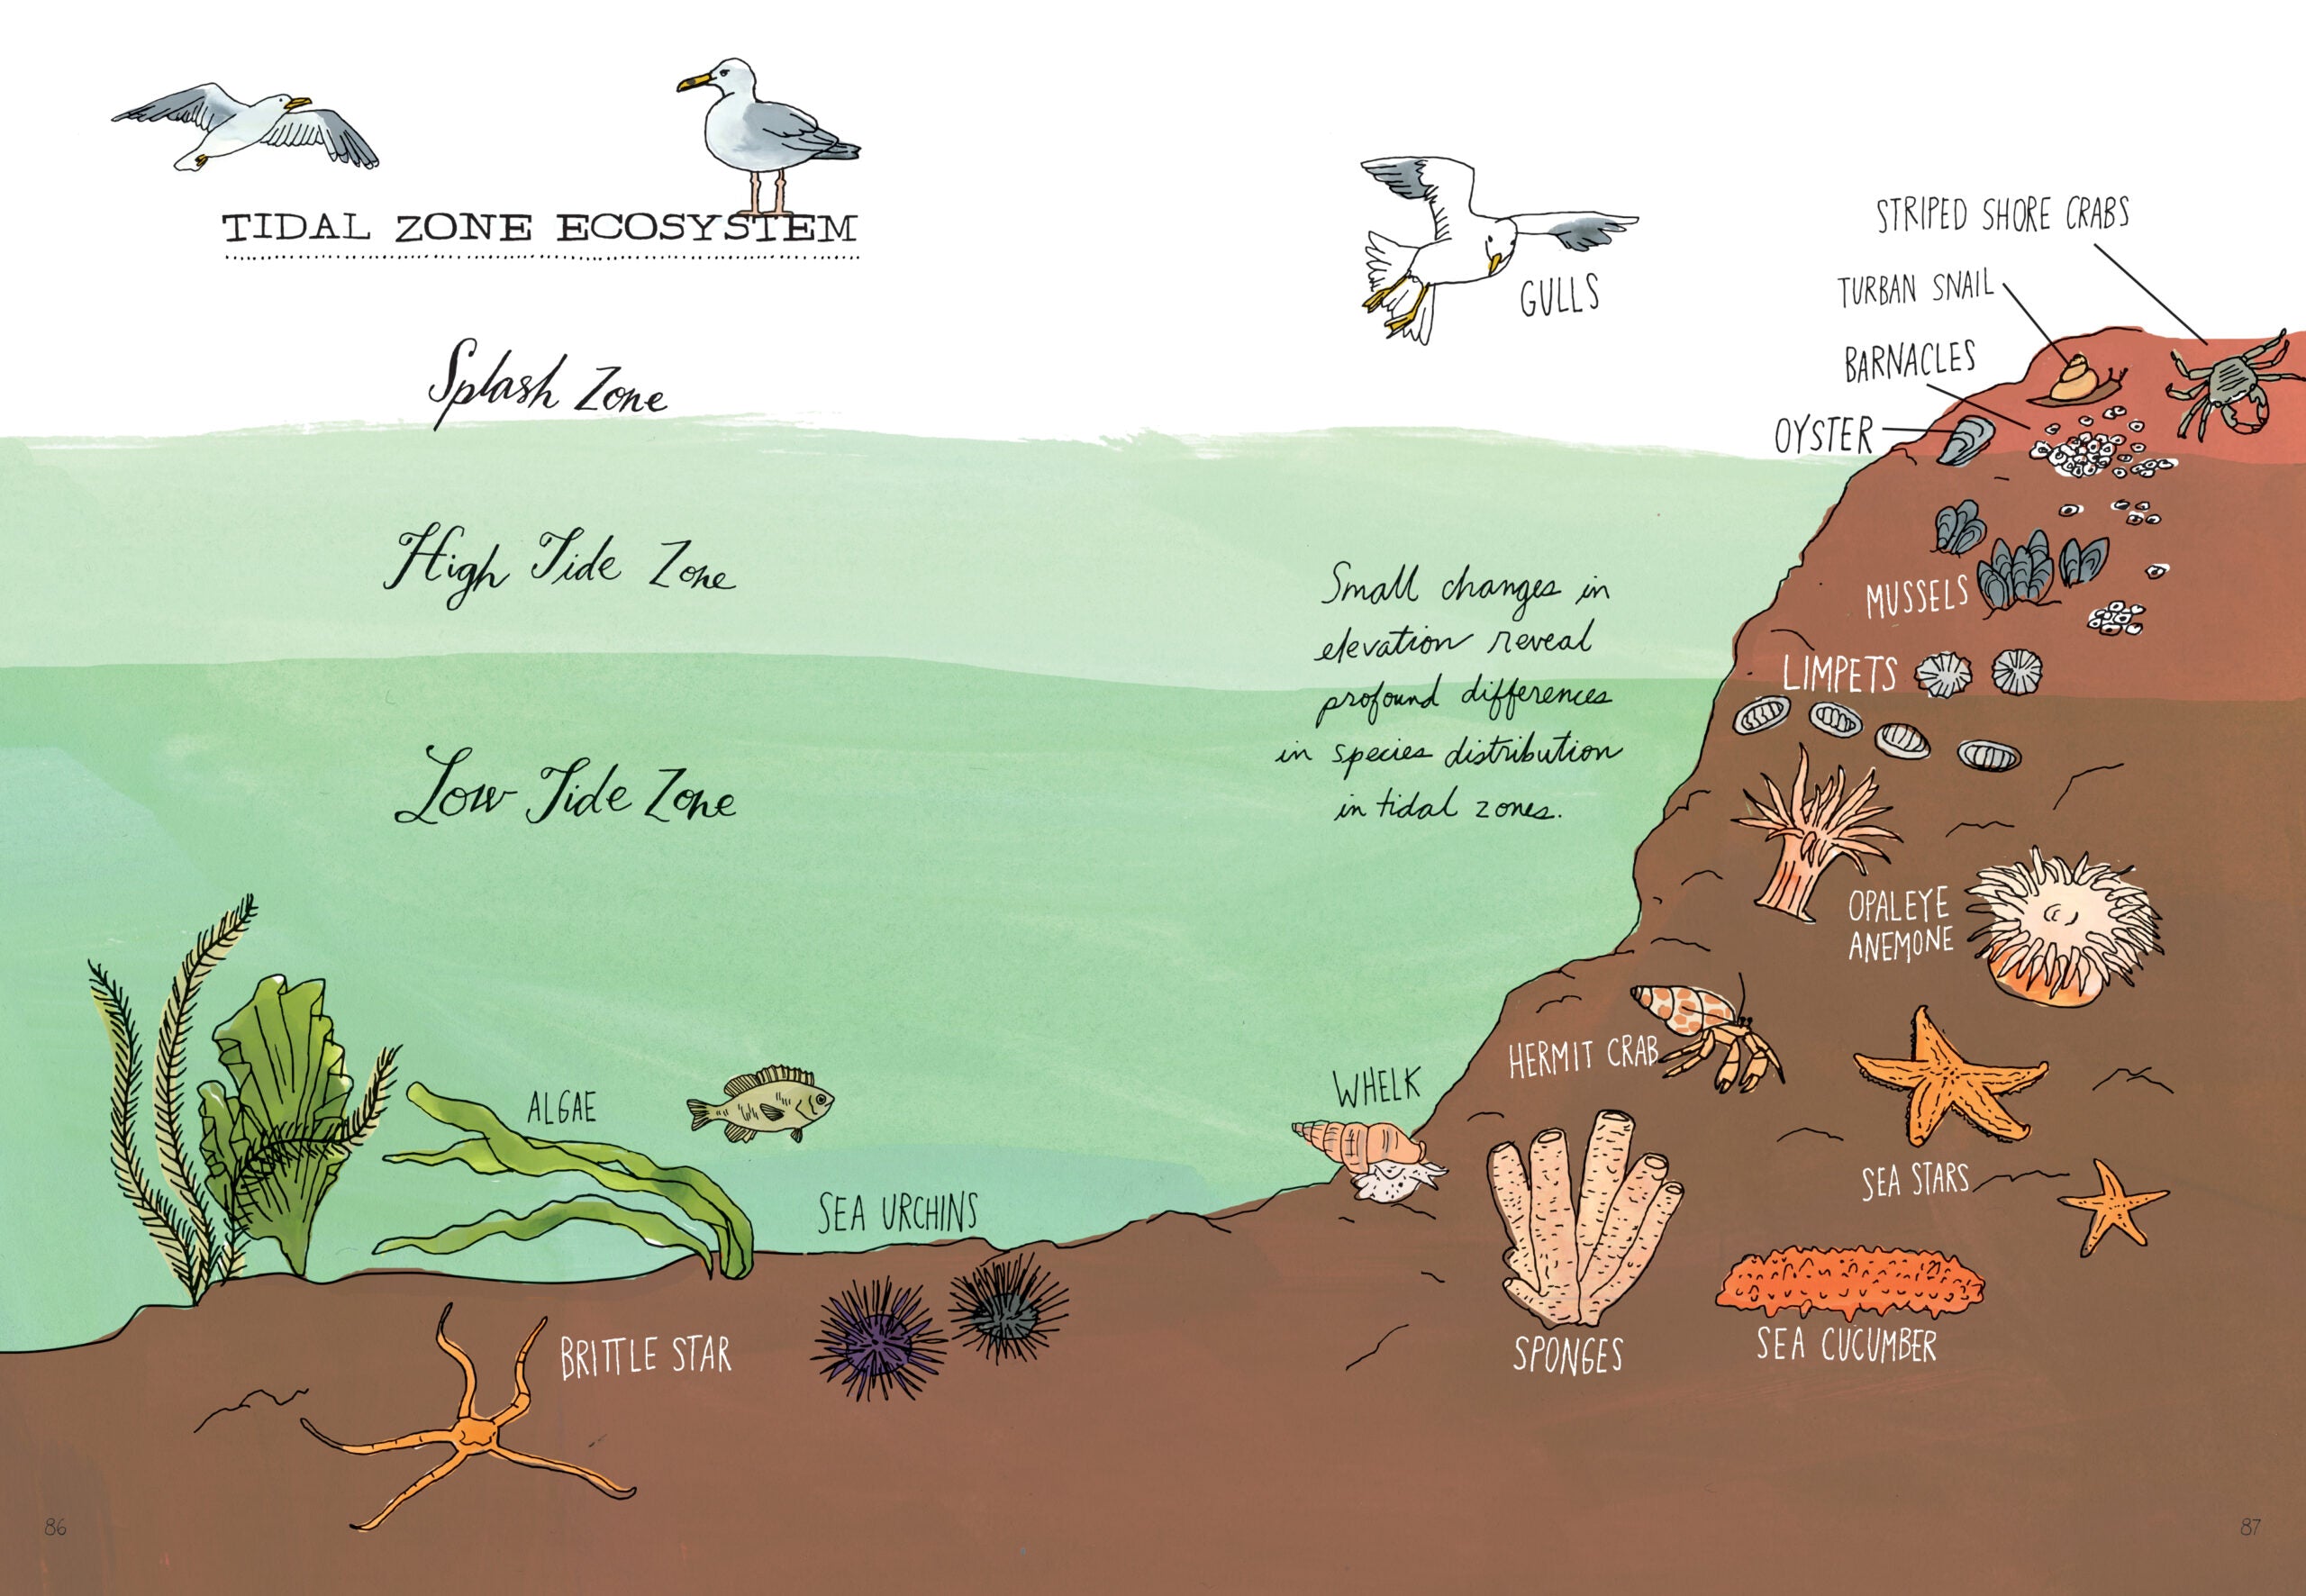 TIDAL ZONE ECOSYSTEM
Splash Zone
High Tide Zone
Low Tide Zone
GULLS
STRIPED SHORE CRABS
TURBAN SNAIL
BARNACLES
OYSTER
MUSSELS
LIMPETS
Small changes in
elevation reveal
profound differences
in species distribution
in tidal zones.
OPALEYE
ANEMONE
HERMIT CRAB
WHELK
SEA STARS
ALGAE
SEA URCHINS
BRITTLE STAR
SPONGES
SEA CUCUMBER
86
87